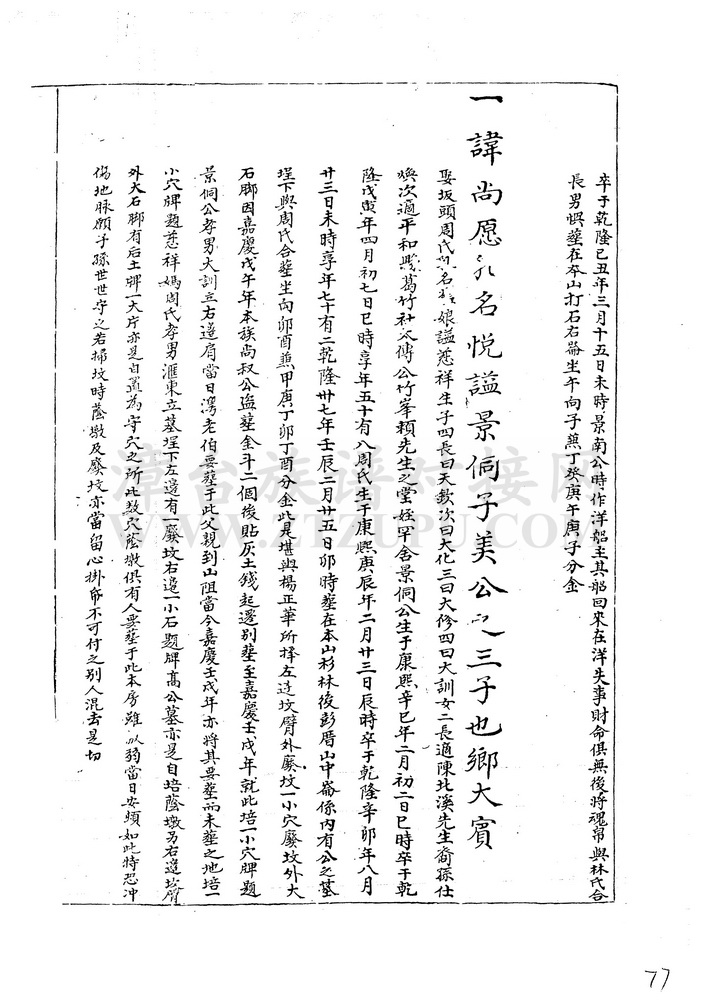 卒于乾隆己丑年三月十五日未時景南公時作洋船主其船回來在洋失事財命俱無後將魂帛與林氏合
長男慎塟在本山打石右崙坐午向子兼丁癸庚午庚子分金
一諱尚愿名悅謚景侗子美公之三子也鄉大賓
娶坂頭周氏名娘謚慈祥生子四長曰天欽次曰大化三曰大修四曰大訓女二長適陳北溪先生裔孫仕
煥次適平和葛竹社公竹峯賴先生之堂姪罕舍景侗公生于康熙辛巳年二月初二日巳時卒于乾
隆戊寅年四月初七日巳時享年五十有八周氏生于康熙庚辰年二月廿三日辰時卒于乾隆辛卯年八月
廿三日未時享年七十有二乾隆卅七年壬辰二月廿五日卯時塟在本山杉林後彭厝山中崙係內有公之墓
埕下與周氏合塟坐向卯酉兼甲庚丁卯丁酉分金此是堪輿楊正華所擇左邊坟臂外廢坟一小穴廢坟外大
石脚因嘉慶戊午年本族尚叔公盜塟金斗二個後貼灰土錢起遷別塟至嘉慶壬戌年就此培一小穴牌題
景侗公孝男大訓立右邊肩當日灣老伯要塟于此父親到山阻當今嘉慶壬戌年亦將其要塟而未塟之地培一
小穴牌題慈祥媽周氏孝男滙東立墓埕下左邊有一廢坟右邊一小石題牌高公墓亦是自培蔭墩另右邊坟臂
外大石脚有后土牌一大片亦是自置為守穴之所此数穴蔭墩俱有人要塟于此本房雖以弱當日安頓如此特恐冲
傷地脉願子孫世世守之若掃坟時蔭墩及廢坟亦當留心掛帛不可付之別人混去是切
漳台族谱对接网
WWW.ZTZUPU.COM
77